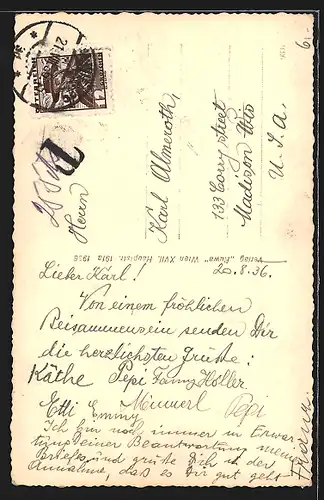 Herrn
Karl Almeroth,
133 Corry street
Madison Wis
U.S.A.
Verlag "Fuwa" Wien XVII, Hauptstr. 191a 1936
20.8.36.
Lieber Karl!
Von einem fröhlichen
Beisammensein senden Dir
die herzlichsten Grüße:
Käthe Pepi Fanny Höller
Etti Emmy Minnerl Pepi
Ich bin noch immer in Erwar-
tung Deiner Beantwortung meines
Briefes und grüße Dich in der
Annahme, daß es Dir gut geht
12
6.-